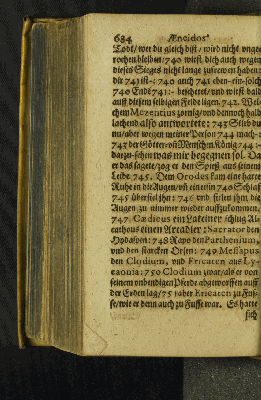 684 Æneidos
Todt/ wer du gleich bist / wird nicht unge-
rochen bleiben/ 740 wirst dich auch wegen
dieses Sieges nicht lange zu frewen haben:
dir 741 ist-: 740 auch 741 eben-ein-solch
740 Ende 741:- bescheret/ und wirst bald
auff diesem selbigen Felde ligen. 742. Wel-
chem Mezentius zornig/ und dennoch halb
lachend also antwortete: 743 Stirb du
nu/ aber wegen meiner Person 744 mach-:
743 der Götter-uñ Menschen König 744:-
was mir begegnen sol. Da
er das sagete/ zog er den Spieß aus seinem
Leibe. 745. Dem Orodes kam eine harte
Ruhe in die Augen/ uñ ein 740 Schlaf
745 überfiel ihn: 746 und fielen ihm die
Augen zu nimmer wieder auffzukommen.
747. Cædicus ein Lateiner schlug Al-
cathous einen Arcadier: Sacrator den
Hydaspen: 748 Rapo den Parthenium,
und den starcken Orsen: 749 Messapus
den Clodium, und Ericaten aus Ly-
caonia: 750 Clodium zwar/ als er von
seinem unbendigen Pferde abgeworffen auff
der Erden lag/ 751 aber Ericaten zu Fus-
se/ wie er denn auch zu Fusse war. Es hatte
sich